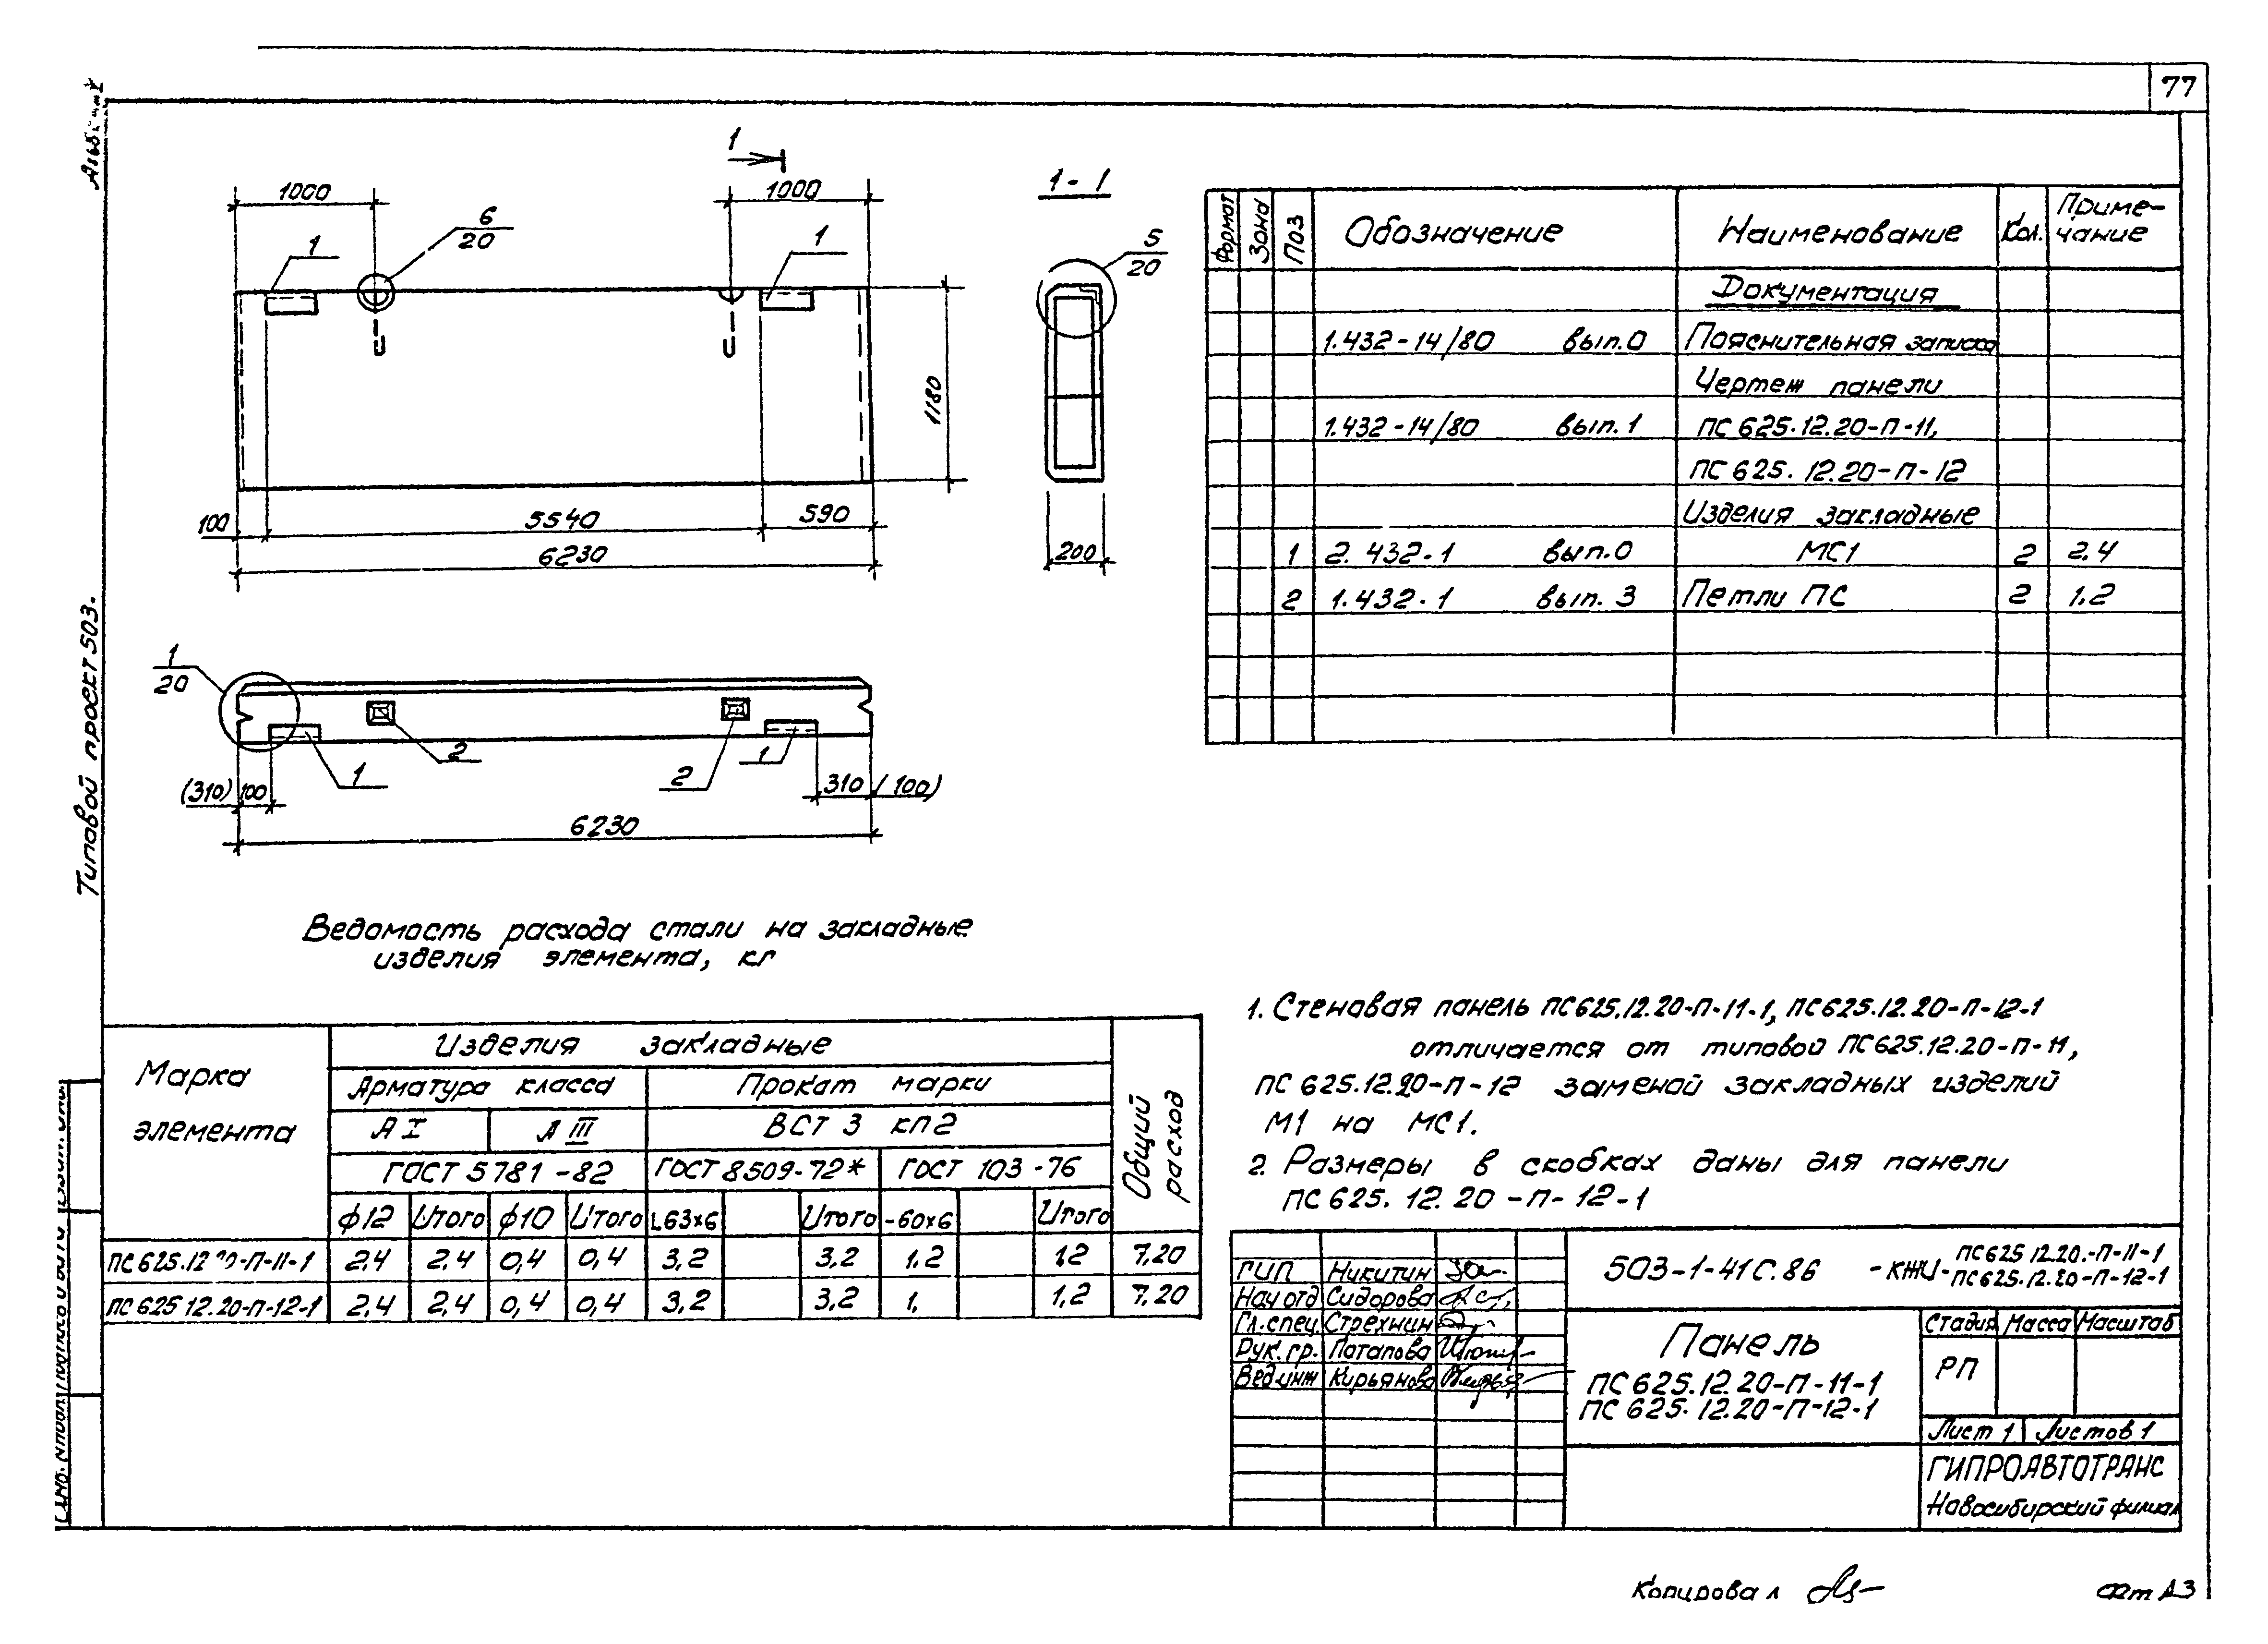 77
Типовой проект 503.
1
1000
1000
6
20
1
1
1180
100
5540
590
6230
1-1
5
20
200
1
20
2
1
2
1
(310)
100
310
(100)
6230
Формат
Зона
Поз
Обозначение
Наименование
Кол.
Приме-
чание
Документация
1.432-14/80 вып.0 Пояснительная записка
Чертеж панели
1.432-14/80 вып.1 ПС625.12.20-П-11,
ПС625.12.20-П-12
Изделия закладные
1 2.432-1 вып.0 МС1 2 2.4
2 1.432-1 вып.3 Петли ПС 2 1.2
Ведомость расхода стали на закладные
изделия элемента, кг
Марка
элемента
Изделия закладные
Общий
расход
Арматура класса
Прокат марки
А I
А III
ВСТ 3 кп2
ГОСТ 5781-82
ГОСТ 8509-72*
ГОСТ 103-76
ф12 Итого ф10 Итого L63х6 Итого -60х6 Итого
ПС625.12.20-П-11-1 2,4 2,4 0,4 0,4 3,2 3,2 1,2 1,2 7,20
ПС625 12.20-П-12-1 2,4 2,4 0,4 0,4 3,2 3,2 1, 1,2 7,20
1. Стеновая панель ПС625.12.20-П-11-1, ПС625.12.20-П-12-1
отличается от типовой ПС625.12.20-П-11,
ПС625.12.20-П-12 заменой закладных изделий
М1 на МС1.
2. Размеры в скобках даны для панели
ПС625.12.20-П-12-1
ГИП Никитин
Нач отд Сидорова
Гл.спец. Стрехнин
Рук.гр. Потапова
Вед.инж Кирьянова
503-1-41с.86 -КЖИ- ПС625 12.20.-П-11-1
ПС625.12.20-П-12-1
Панель
ПС625.12.20-П-11-1
ПС625.12.20-П-12-1
Стадия Масса Масштаб
РП
Лист 1 Листов 1
ГИПРОАВТОТРАНС
Новосибирский филиал
Копировал
А3